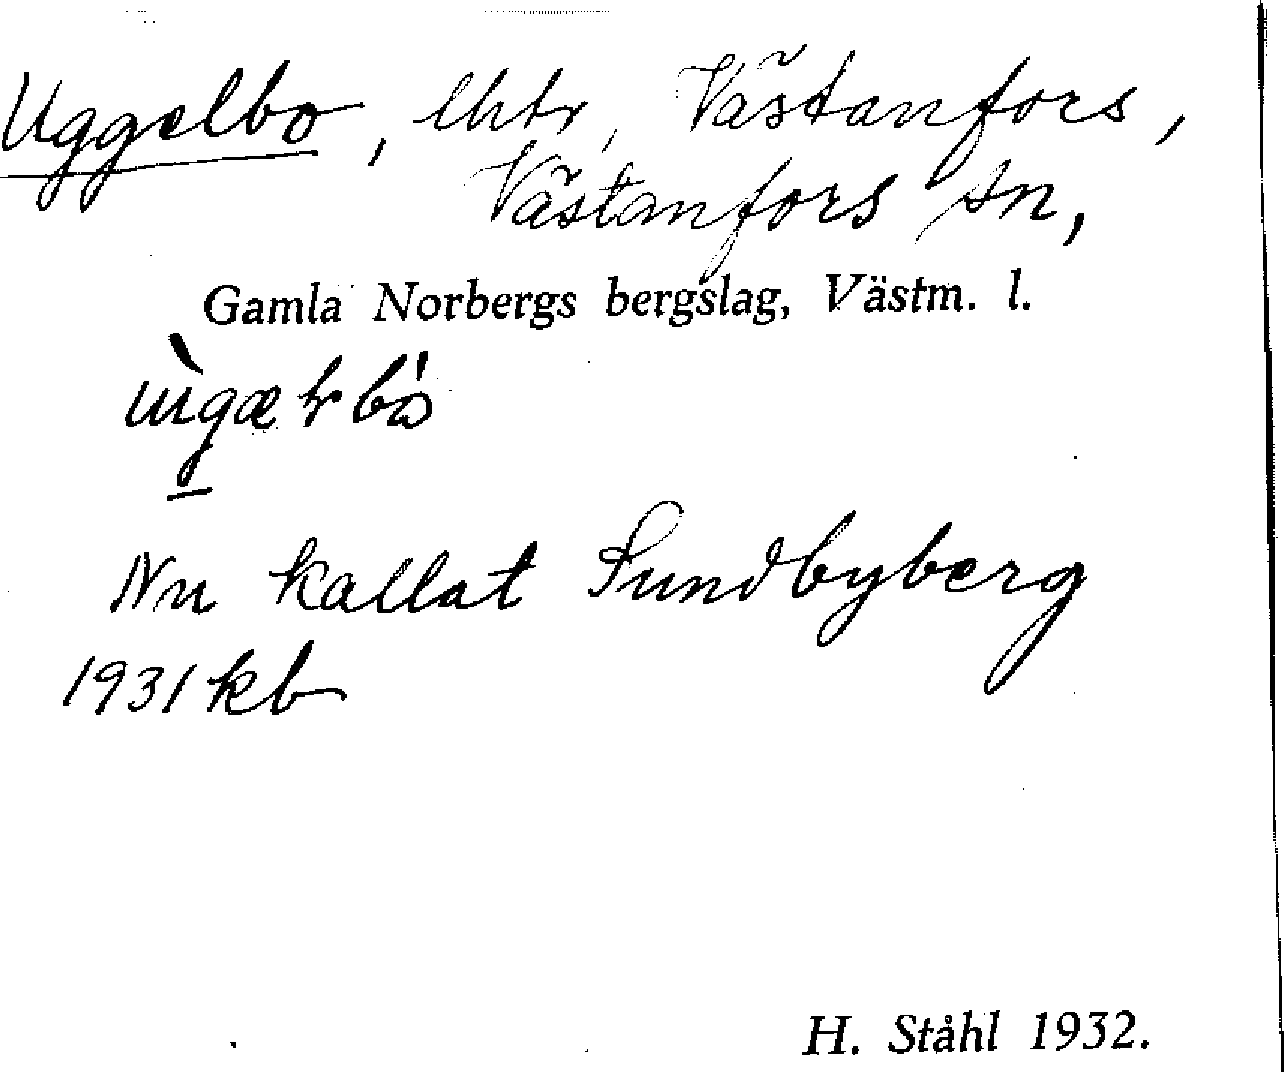 Uggelbo, lhtr, Västanfors,
Västanfors sn,
Gamla Norbergs bergslag, Västm. l.
Nu kallat Sundbyberg
1931 kb
H. Ståhl 1932.